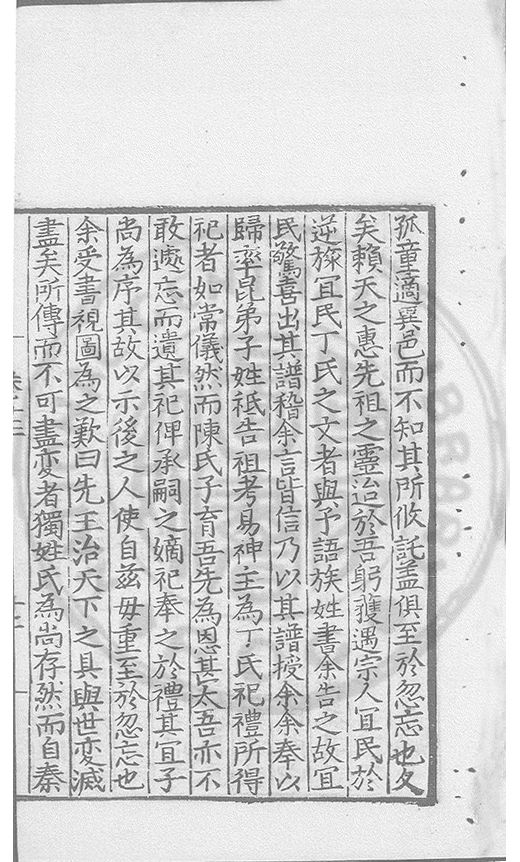 孤童適異邑而不知其所攸託盖俱至於忽忘也久
矣賴天之惠先祖之靈迨於吾躬獲遇宗人宜民於
逆旅宜民丁氏之文者與予語族姓書余告之故宜
民驚喜出其譜稽余言皆信乃以其譜授余余奉以
歸率昆弟子姓祗告祖考易神主為丁氏祀禮所得
祀者如常儀然而陳氏子育吾先為恩甚太吾亦不
敢遽忘而遺其祀俾承嗣之嫡祀奉之於禮其宜子
尚為序其故以示後之人使自兹毋重至於忽忘也
余受書視圖為之歎曰先王治天下之具與世変滅
盡矣所傳而不可盡変者獨姓氏為尚存然而自秦